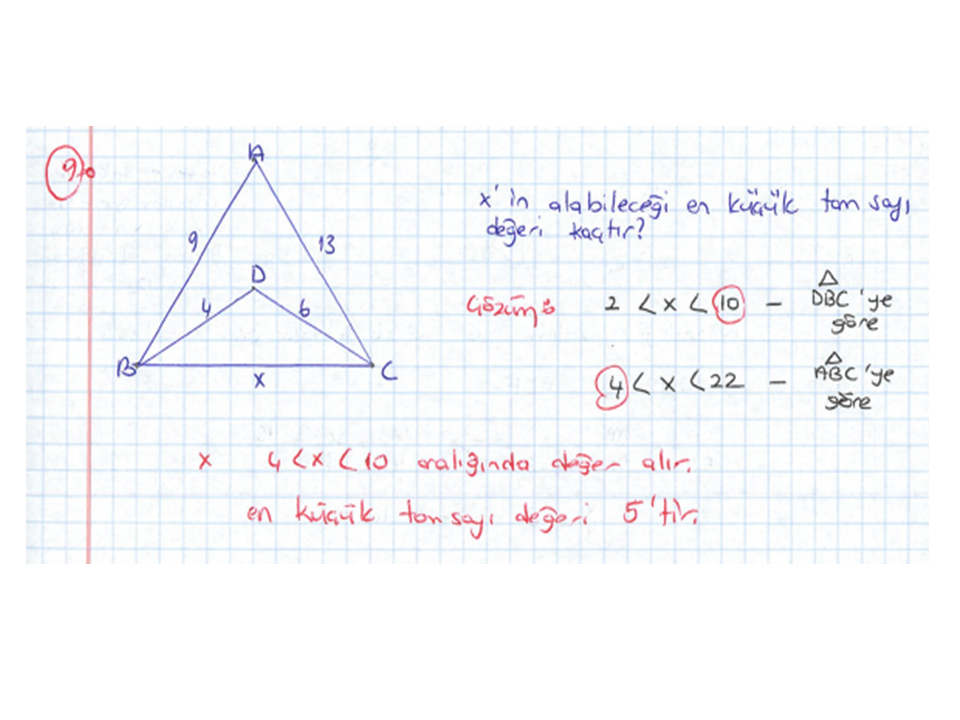 9)
A
x'in alabileceği en küçük tam sayı
değeri kaçtır?
9
13
D
4
6
B
C
x
Çözüm:
2 < x < 10 — DBC'ye
göre
4 < x < 22 — ABC'ye
göre
x 4 < x < 10 aralığında değer alır.
en küçük tam sayı değeri 5'tir.